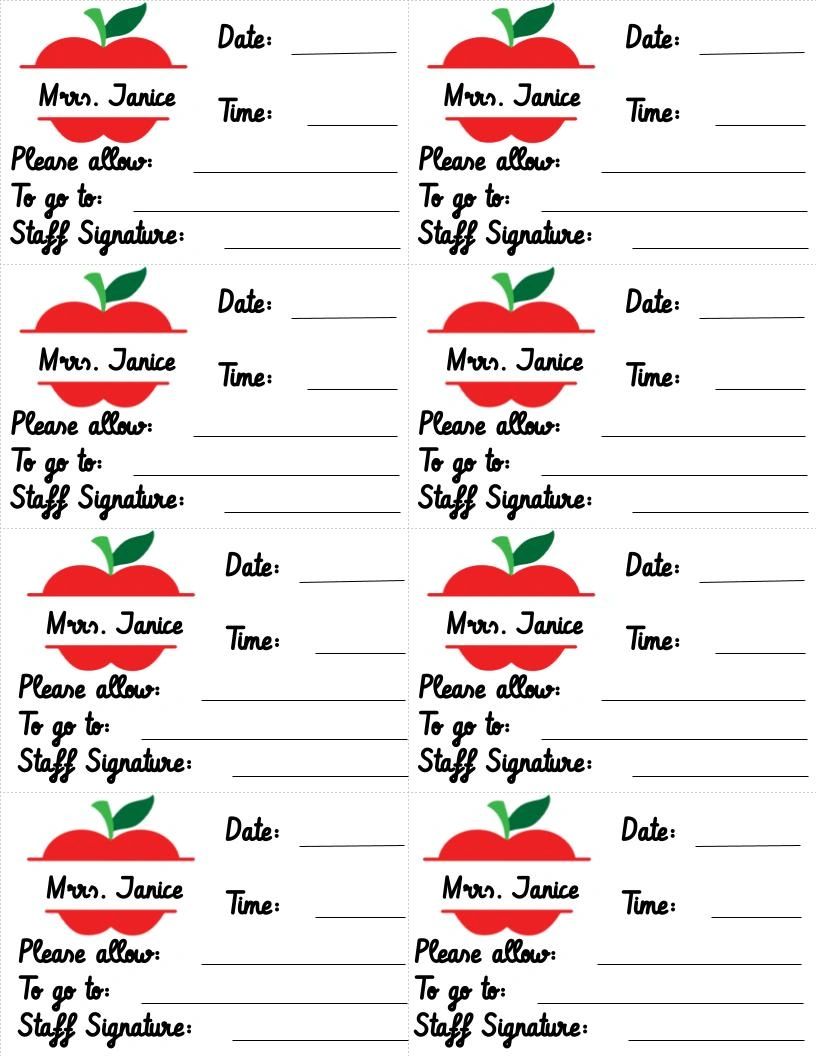 Date:
Mrrs. Janice
Time:
Please allow:
To go to:
Staff Signature:
Date:
Mrrs. Janice
Time:
Please allow:
To go to:
Staff Signature:
Date:
Mrrs. Janice
Time:
Please allow:
To go to:
Staff Signature:
Date:
Mrrs. Janice
Time:
Please allow:
To go to:
Staff Signature:
Date:
Mrrs. Janice
Time:
Please allow:
To go to:
Staff Signature:
Date:
Mrrs. Janice
Time:
Please allow:
To go to:
Staff Signature:
Date:
Mrrs. Janice
Time:
Please allow:
To go to:
Staff Signature:
Date:
Mrrs. Janice
Time:
Please allow:
To go to:
Staff Signature: